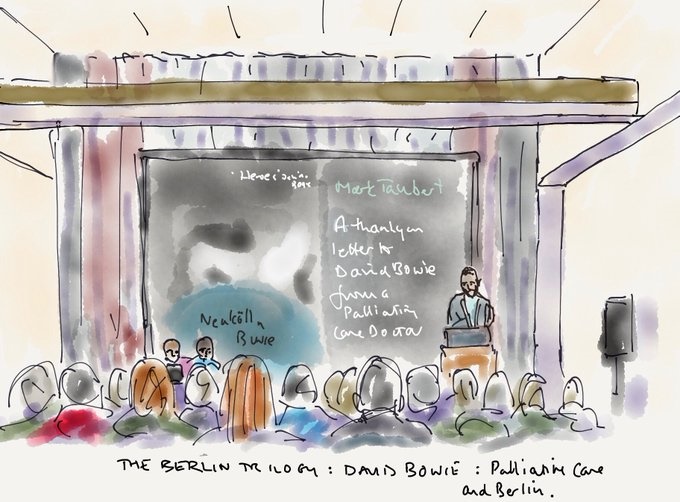 "Heroes"
Mark Taubert
A thankyou
letter to
David Bowie
from a
Palliative
Care Doctor
Neukölln
Bowie
THE BERLIN TRILOGY : DAVID BOWIE : Palliative Care
and Berlin.